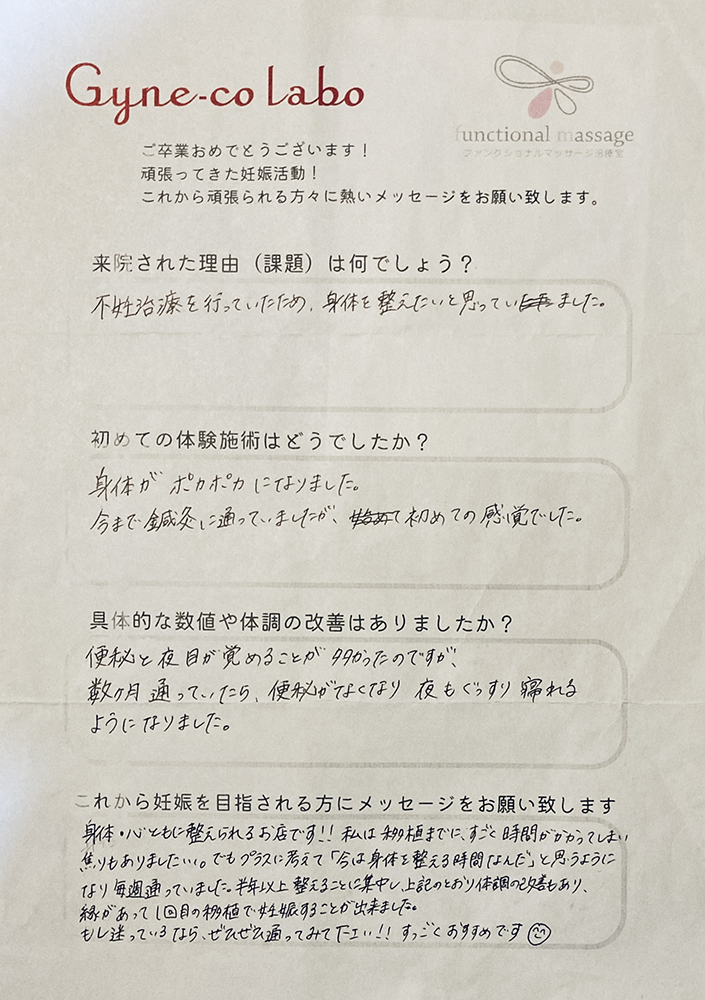 Gyne-co labo
functional massage
ファンクショナルマッサージ治療室
ご卒業おめでとうございます！
頑張ってきた妊娠活動！
これから頑張られる方々に熱いメッセージをお願い致します。
来院された理由（課題）は何でしょう？
不妊治療を行っていたため、身体を整えたいと思っていました。
初めての体験施術はどうでしたか？
身体が ポカポカ になりました。
今まで鍼灸に通っていましたが、初めての感覚でした。
具体的な数値や体調の改善はありましたか？
便秘と夜目が覚めることが多かったのですが、
数ヶ月通っていたら、便秘がなくなり 夜もぐっすり寝れる
ようになりました。
これから妊娠を目指される方にメッセージをお願い致します
身体・心ともに整えられるお店です!! 私は移植までに、すごく時間がかかってしまい
焦りもありました。でもプラスに考えて「今は身体を整える時間なんだ」と思うように
なり毎週通っていました。半年以上整えることに集中し、上記のとおり体調の改善もあり、
縁があって1回目の移植で妊娠することが出来ました。
もし迷っているなら、ぜひぜひ通ってみて下さい!! すっごくおすすめです